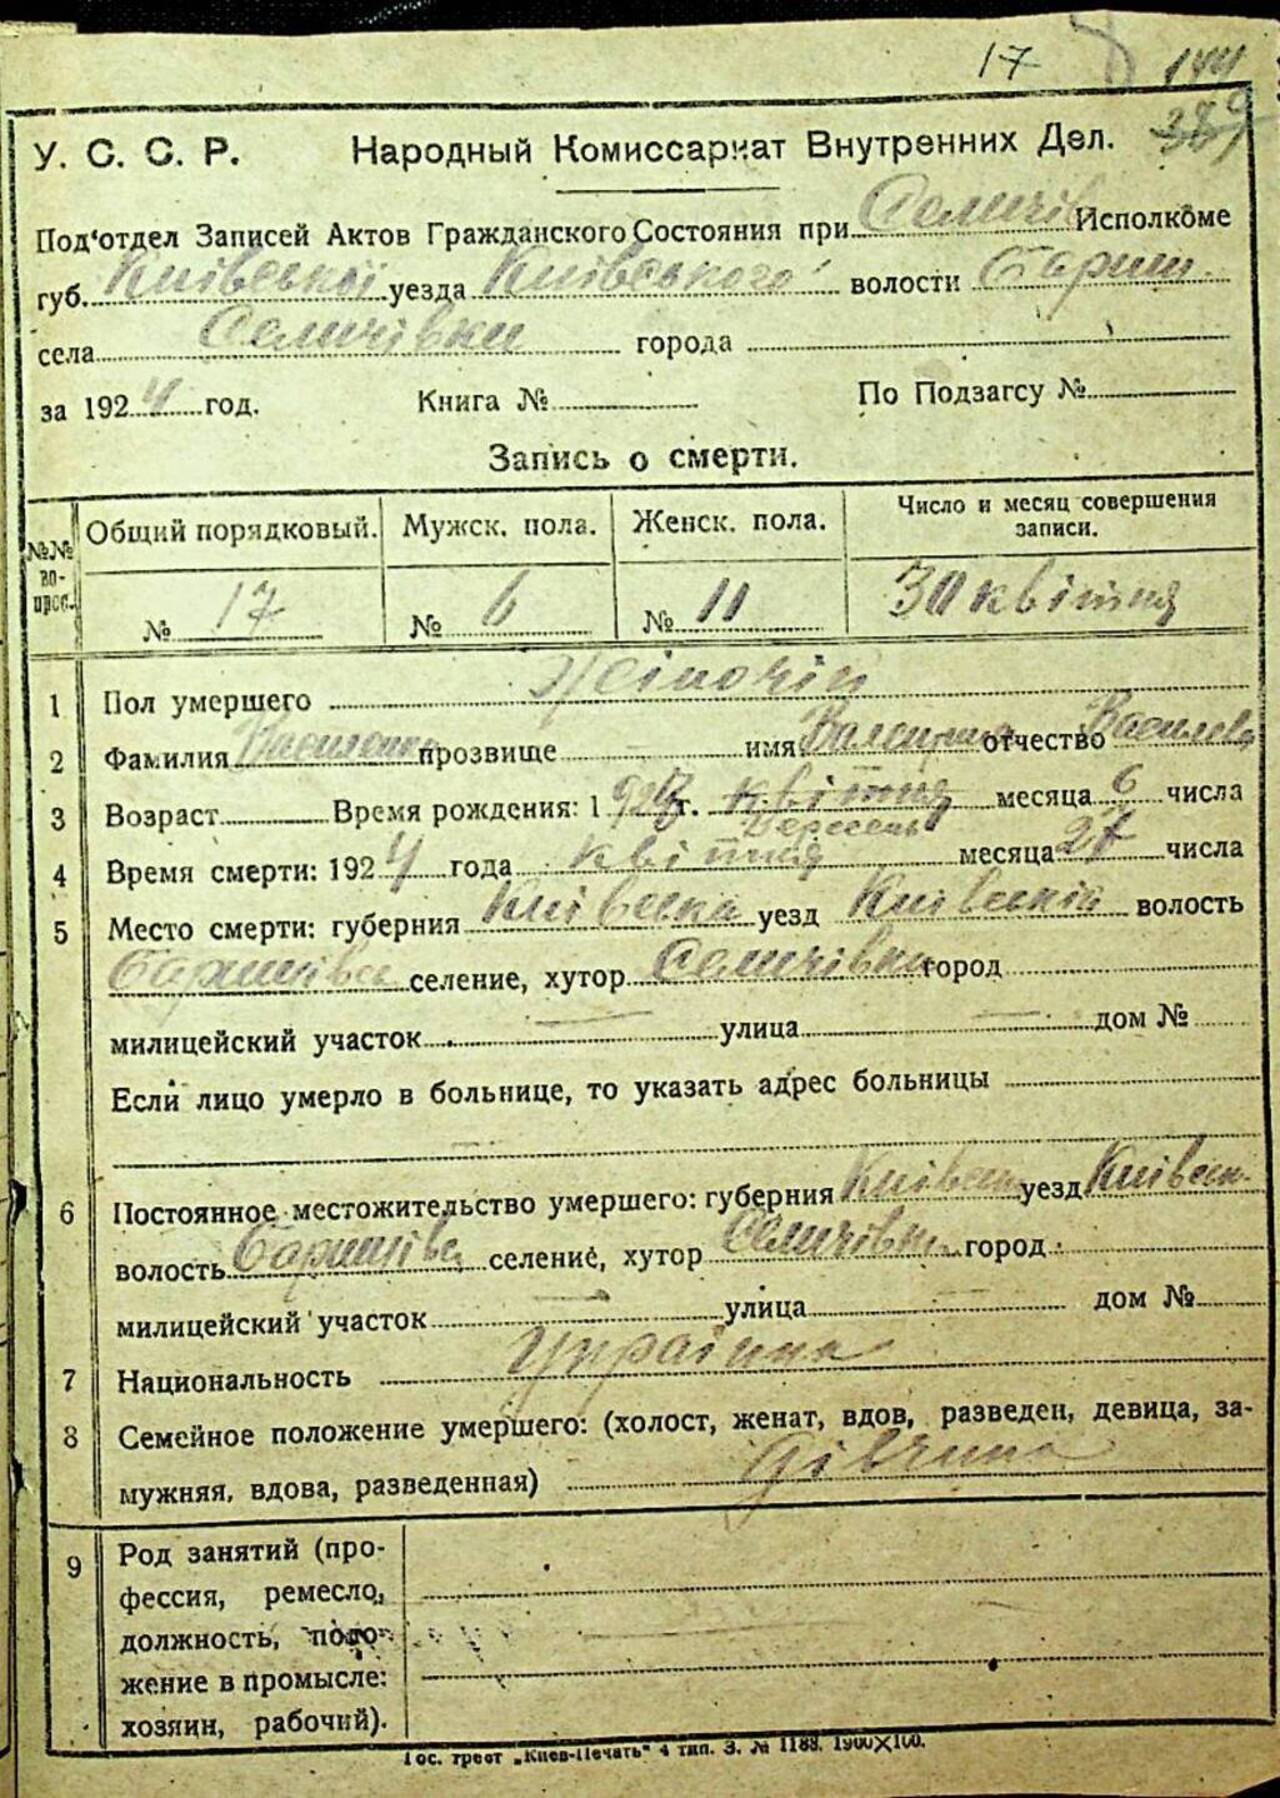 17 144
389
У. С. С. Р. Народный Комиссариат Внутренних Дел.
Под'отдел Записей Актов Гражданского Состояния при Селичів Исполкоме
губ. Київської уезда Київського волости Бариш.
села Селичівки города
за 1924 год. Книга № По Подзагсу №
Запись о смерти.
№№ во-прос. Общий порядковый. Мужск. пола. Женск. пола. Число и месяц совершения записи.
№ 17 № 6 № 11 30 квітня
1 Пол умершего Жіночій
2 Фамилия прозвище — имя отчество Василева
3 Возраст Время рождения: 1923 г. квітня месяца 6 числа
Вересень
4 Время смерти: 1924 года квітня месяца 27 числа
5 Место смерти: губерния Київська уезд Київській волость
Баришівск селение, хутор Селичівка город
милицейский участок — улица — дом №
Если лицо умерло в больнице, то указать адрес больницы
—
6 Постоянное местожительство умершего: губерния Київськ уезд Київськ.
волость Баришівс селение, хутор Селичівка город
милицейский участок — улица — дом №
7 Национальность Українка
8 Семейное положение умершего: (холост, женат, вдов, разведен, девица, за-
мужняя, вдова, разведенная) Дівчина
9 Род занятий (про-
фессия, ремесло,
должность, поло-
жение в промысле:
хозяин, рабочий).
Гос. трест „Киев-Печать" 4 тип. З. № 1188. 1900×100.